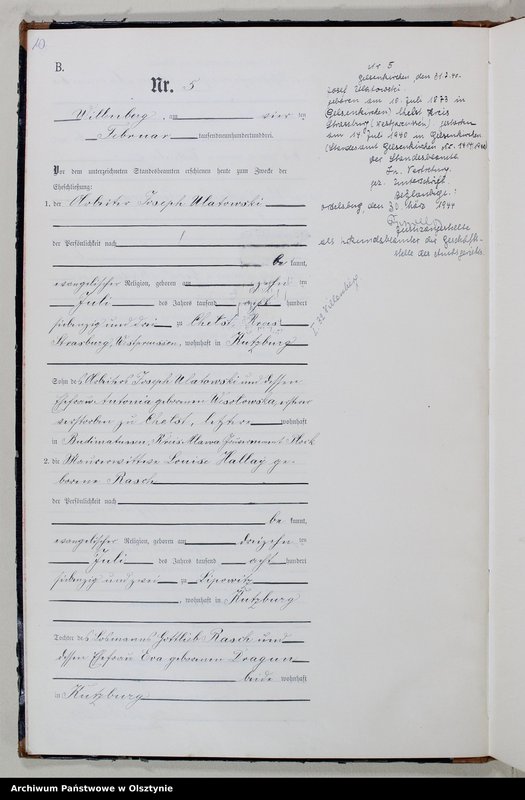 10
B.
Nr. 5
Willenberg, am vier ten
Februar tausendneunhundertunddrei.
Vor dem unterzeichneten Standesbeamten erschienen heute zum Zwecke der
Eheschließung:
1. der Arbeiter Joseph Ulatowski
der Persönlichkeit nach
be kannt,
evangelischer Religion, geboren am zehn ten
Juli des Jahres tausend acht hundert
siebenzig und drei zu Chelst, Kreis
Strasburg, Westpreussen, wohnhaft in Kutzburg
Sohn des Arbeiters Joseph Ulatowski und dessen
Ehefrau Antonia geborenen Wesolowska, ersterer
verstorben zu Chelst, letztere wohnhaft
in Kreis Mlawa Plock
2. die Maurerwittwe Louise Hallay ge-
borene Rasch
der Persönlichkeit nach
be kannt,
evangelischer Religion, geboren am dreizehn ten
Juli des Jahres tausend acht hundert
siebenzig und zwei zu Lipowitz
, wohnhaft in Kutzburg
Tochter des Losmanns Gottlieb Rasch und
dessen Ehefrau Eva geborenen Dragun
beide wohnhaft
in Kutzburg
Nr. 5
Gelsenkirchen den 31.7.40.
Josef Ulatowski
geboren am 10. Juli 1873 in
Chelst Kreis
Strasburg (Westpreussen), gestorben
am 14. Juli 1940 in Gelsenkirchen
(Standesamt Gelsenkirchen Nr.
Der Standesbeamte
In Vertretung
gez. Unterschrift
Beglaubigt:
Ortelsburg, den 30. März 1944
Justizangestellte
als Urkundsbeamter der Geschäfts-
stelle des Amtsgerichts.
Archiwum Państwowe w Olsztynie